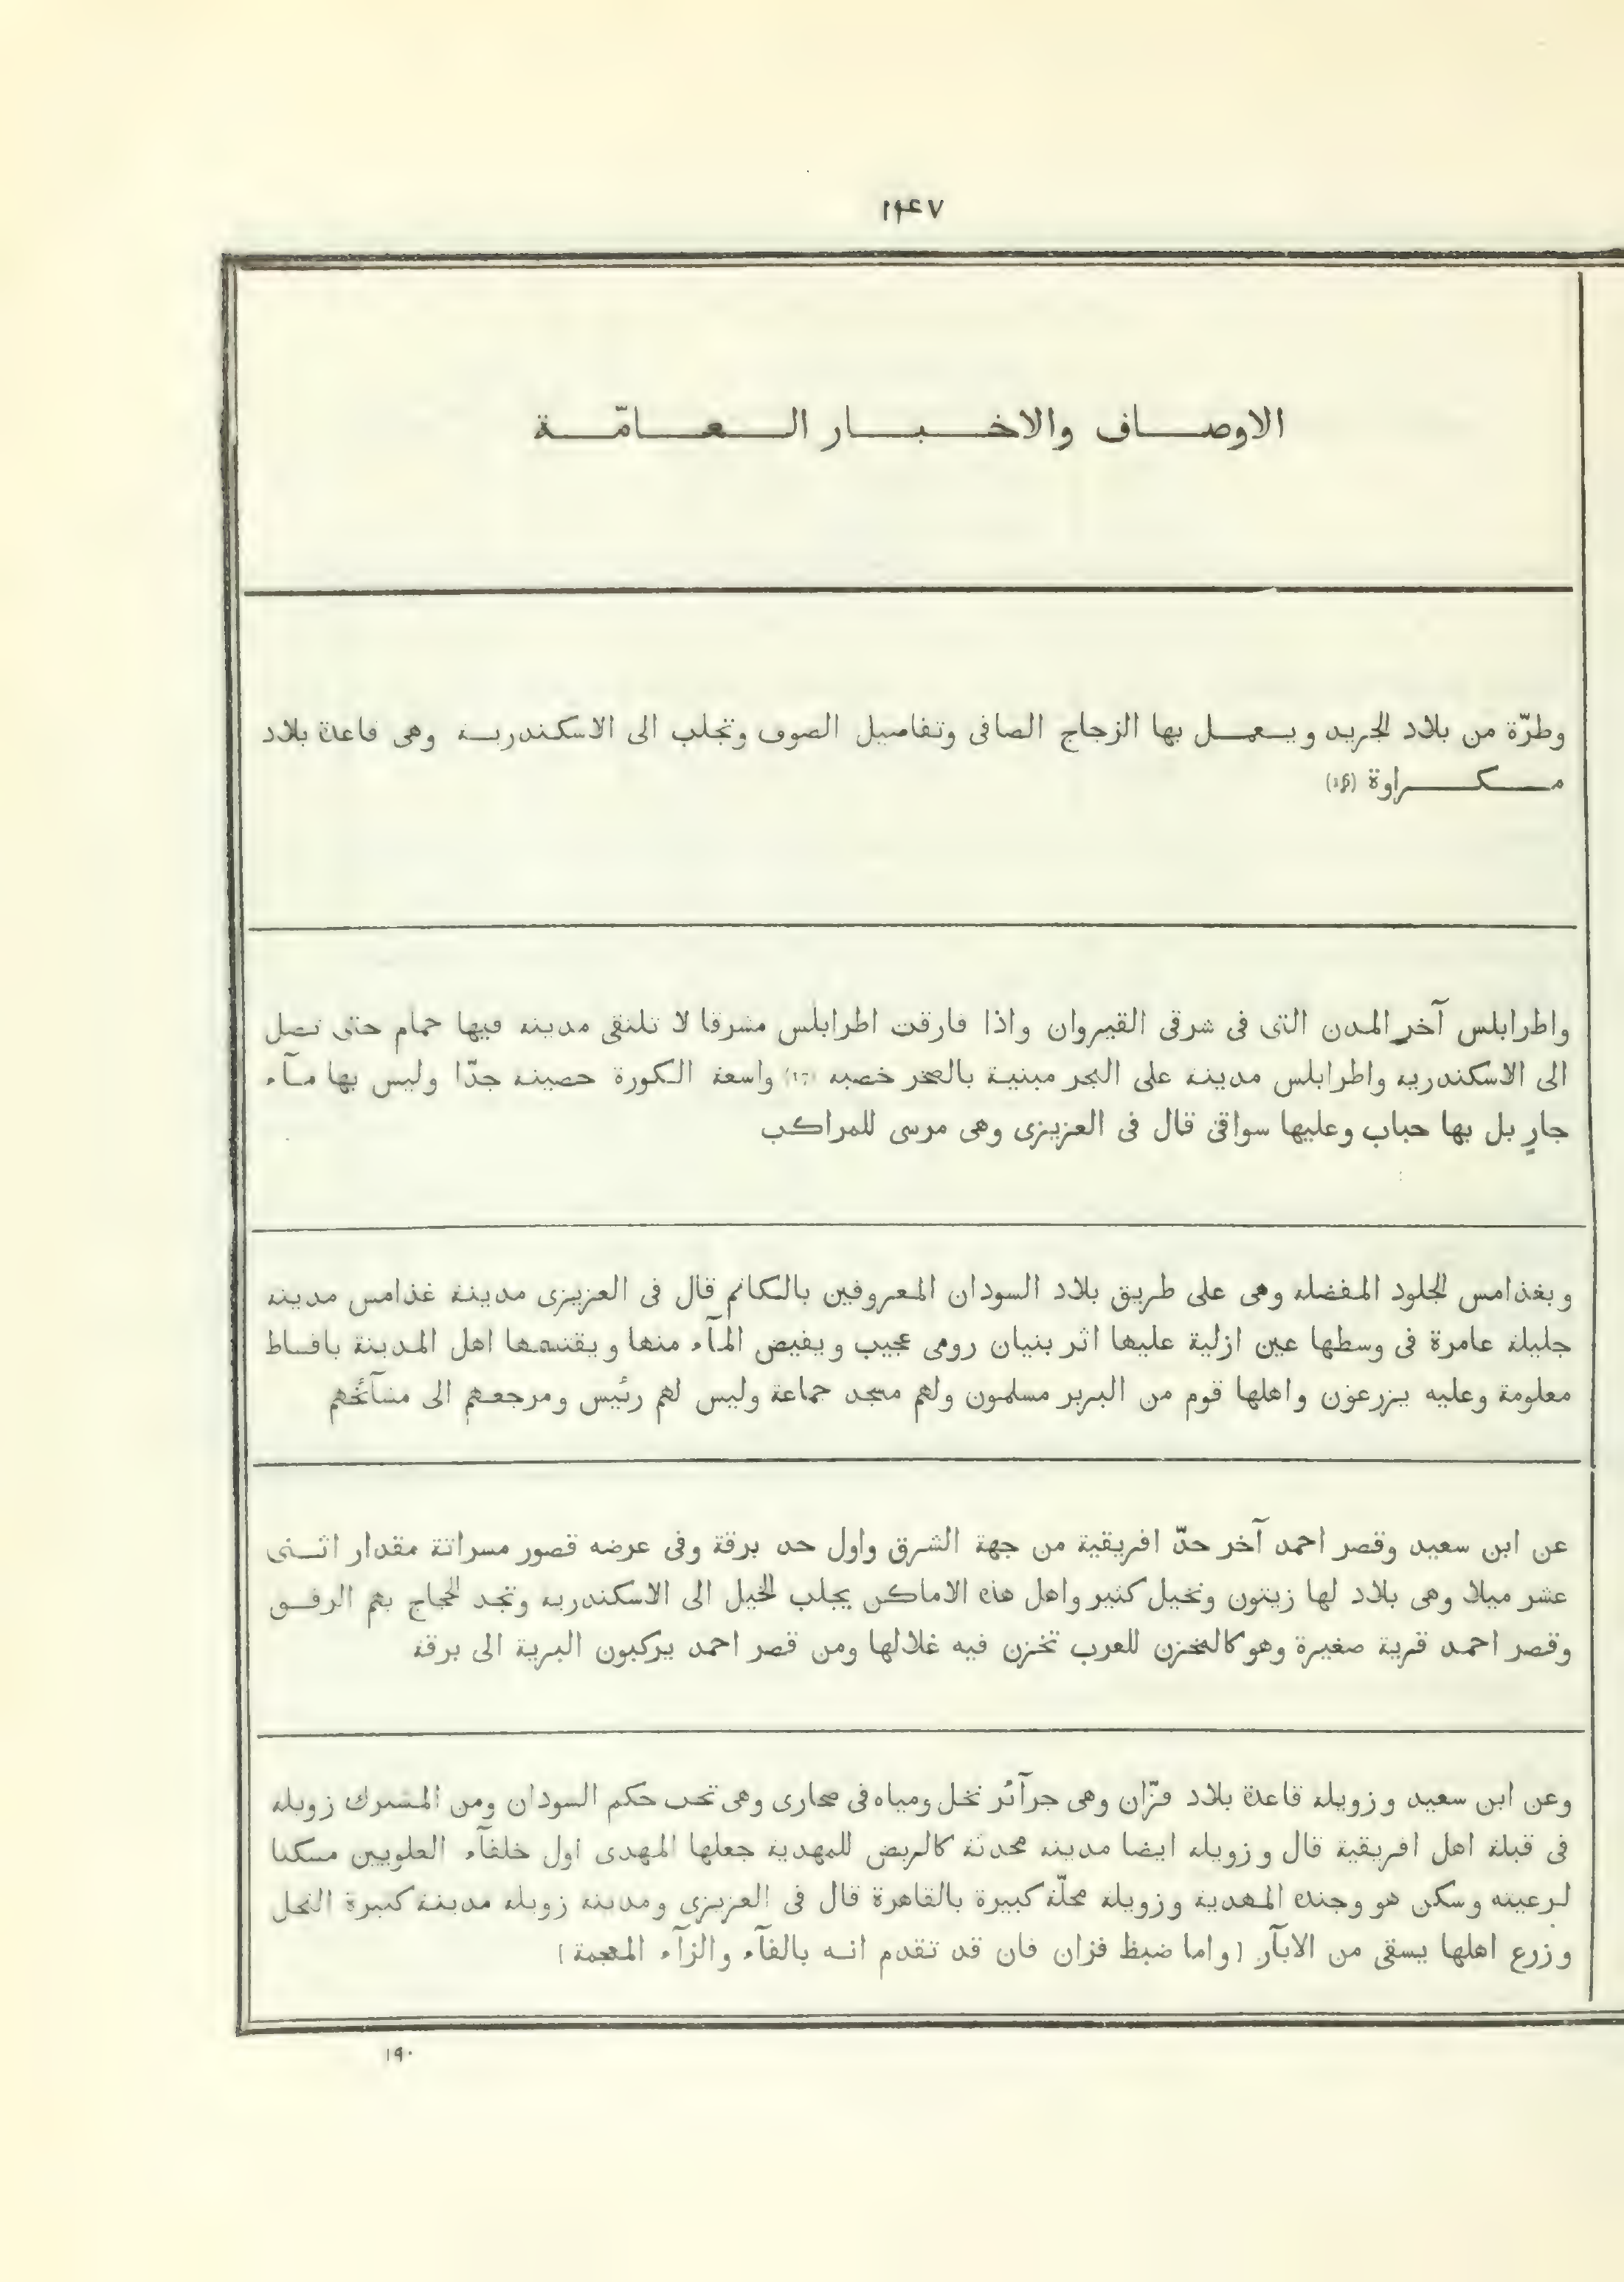 ١٤٧
الاوصاف والاخبار العامّة
وطرّة من بلاد الجريد ويعمل بها الزجاج الصافى وتفاصيل الصوف وتجلب الى الاسكندرية وهى قاعدة بلاد
مكراوة
واطرابلس آخر المدن التى فى شرقى القيروان واذا فارقت اطرابلس مشرقا لا تلتقى مدينة فيها حمام حتى تصل
الى الاسكندرية واطرابلس مدينة على البحر مبنية بالصخر خصبة واسعة الكورة حصينة جدّا وليس بها مآء
جارٍ بل بها حباب وعليها سواقى قال فى العزيزى وهى مرسى للمراكب
وبغذامس الجلود المفضلة وهى على طريق بلاد السودان المعروفين بالكانم قال فى العزيزى مدينة غذامس مدينة
جليلة عامرة فى وسطها عين ازلية عليها اثر بنيان رومى عجيب ويفيض المآء منها ويقتسمها اهل المدينة باقساط
معلومة وعليه يزرعون واهلها قوم من البربر مسلمون ولهم مسجد جماعة وليس لهم رئيس ومرجعهم الى مشآئخهم
عن ابن سعيد وقصر احمد آخر حدّ افريقية من جهة الشرق واول حد برقة وفى عرضه قصور مسراتة مقدار اثنى
عشر ميلا وهى بلاد لها زيتون ونخيل كثير واهل هذه الاماكن يجلب الخيل الى الاسكندرية وتجد الحجاج بهم الرفق
وقصر احمد قرية صغيرة وهو كالمخزن للعرب تخزن فيه غلالها ومن قصر احمد يركبون البرية الى برقة
وعن ابن سعيد وزويلة قاعدة بلاد فزّان وهى جزآئر نخل ومياه فى صحارى وهى تحت حكم السودان ومن المشترك زويلة
فى قبلة اهل افريقية قال وزويلة ايضا مدينة محدثة كالربض للمهدية جعلها المهدى اول خلفآء العلويين مسكنا
لرعيته وسكن هو وجنده المهدية وزويلة محلّة كبيرة بالقاهرة قال فى العزيزى ومدينة زويلة مدينة كبيرة النخل
وزرع اهلها يسقى من الابآر [واما ضبط فزان فان قد تقدم انه بالفآء والزآء المعجمة]
١٩٠